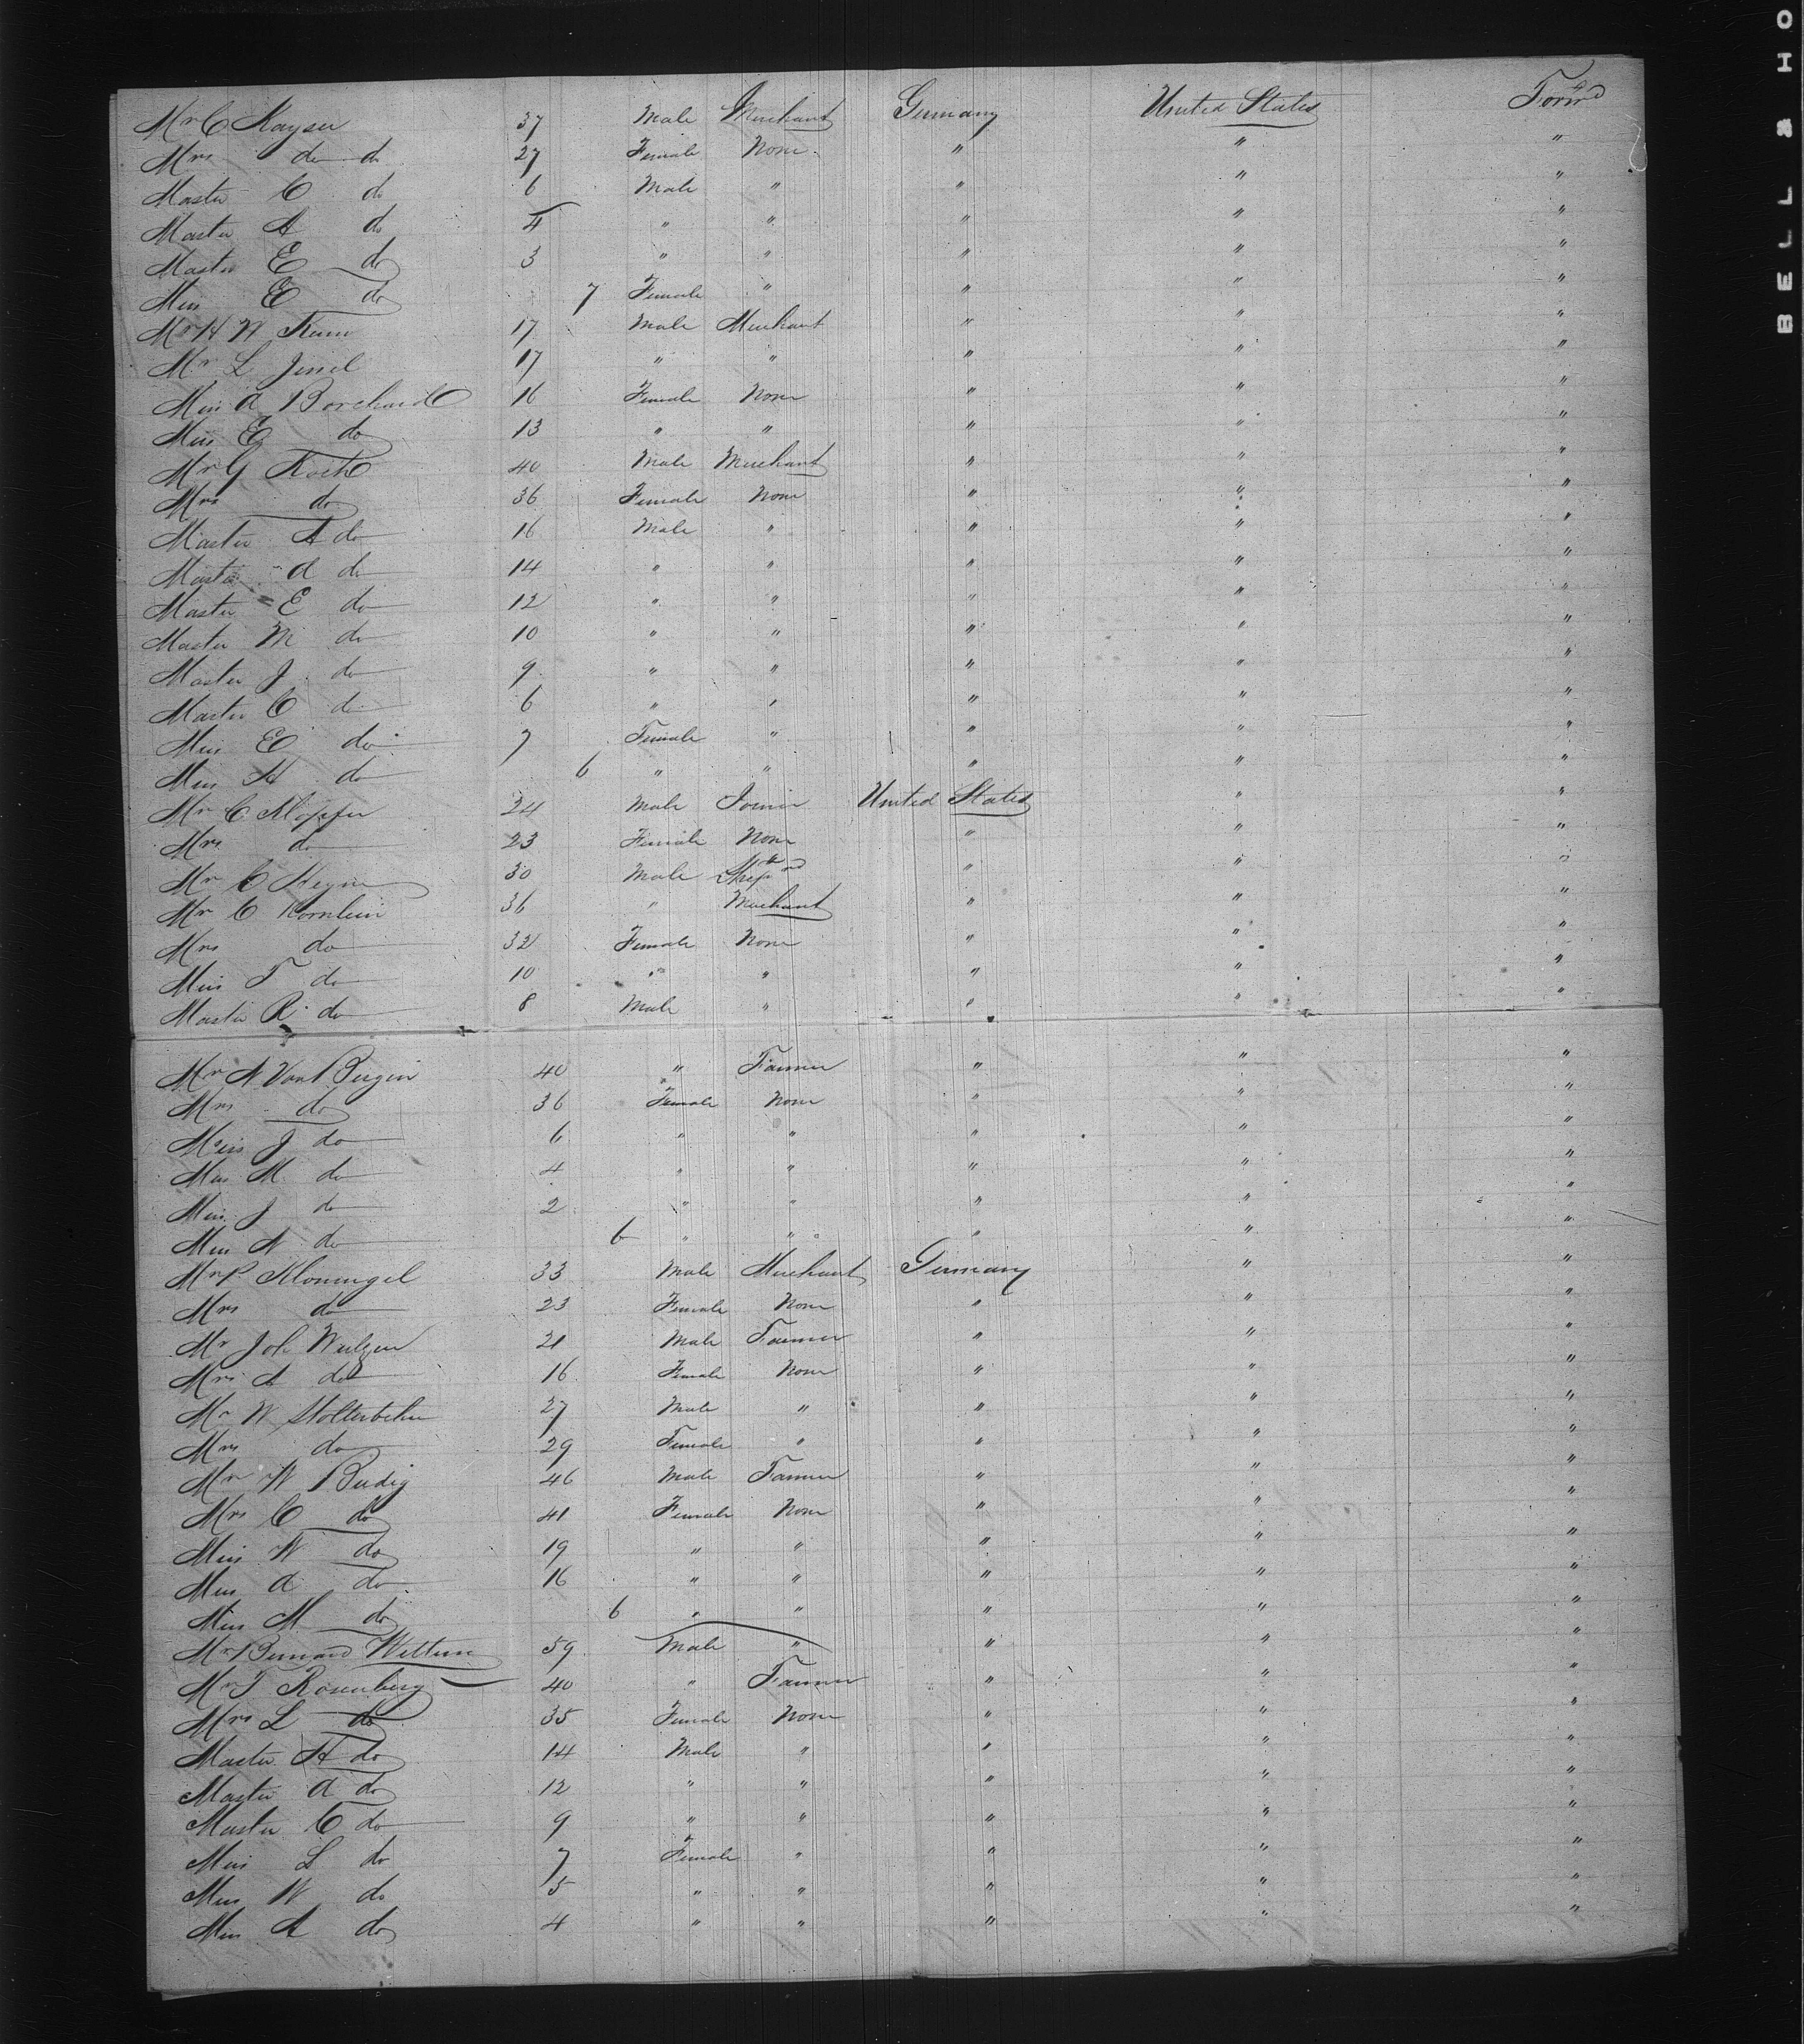 Mr C Kayser 37 Male Merchant Germany United States Forwd
Mrs do do 27 Female None " " "
Master C do 6 Male " " " "
Master A do 4 " " " " "
Master E do 3 " " " " "
Miss E do 7 Female " " " "
Mr H W 17 Male Merchant " " "
Mr L 17 " " " " "
Miss A Borchard 16 Female None " " "
Miss E do 13 " " " " "
Mr G 40 Male Merchant " " "
Mrs do 36 Female None " " "
Master A do 16 Male " " " "
Master A do 14 " " " " "
Master E do 12 " " " " "
Master M do 10 " " " " "
Master J do 9 " " " " "
Master C do 6 " " " " "
Miss E do 7 Female " " " "
Miss H do 6 " " " " "
Mr C Klopfer 24 Male Joiner United States " "
Mrs do 23 Female None " " "
Mr C 30 Male " " "
Mr C Kornlein 36 " Merchant " " "
Mrs do 32 Female None " " "
Miss T do 10 " " " " "
Master R do 8 Male " " " "
Mr N Van Bergen 40 " Farmer " " "
Mrs do 36 Female None " " "
Miss J do 6 " " " " "
Miss M do 4 " " " " "
Miss J do 2 " " " " "
Miss N do 6 " " " " "
Mr P. 33 Male Merchant Germany " "
Mrs do 23 Female None " " "
Mr Joh 21 Male Farmer " " "
Mrs A do 16 Female None " " "
Mr W 27 Male " " " "
Mrs do 29 Female " " " "
Mr W Budig 46 Male Farmer " " "
Mrs C do 41 Female None " " "
Miss W do 19 " " " " "
Miss A do 16 " " " " "
Miss M do 6 " " " " "
Mr Bernard 59 Male " " " "
Mr T Rosenberg 40 " Farmer " " "
Mrs L do 35 Female None " " "
Master H do 14 Male " " " "
Master A do 12 " " " " "
Master C do 9 " " " " "
Miss L do 7 Female " " " "
Miss W do 5 " " " " "
Miss A do 4 " " " " "
BELL & HO